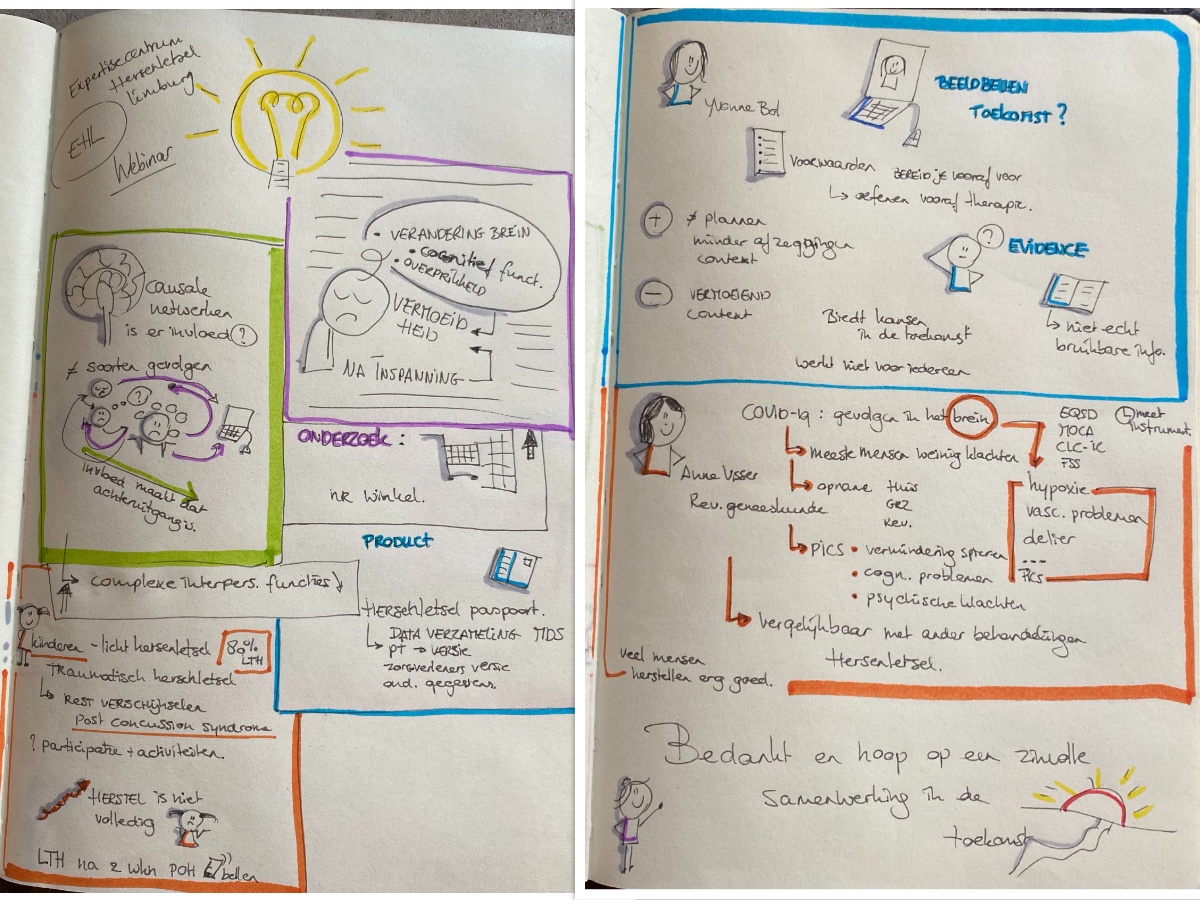 Expertisecentrum
Hersenletsel
Limburg
EHL
Webinar
• VERANDERING BREIN
• cognitief funct.
• OVERPRIKKELD
VERMOEID
HEID
NA INSPANNING
causale
netwerken
is er invloed ?
≠ soorten gevolgen
?
invloed maakt dat
achteruitgang is.
ONDERZOEK :
nr winkel.
PRODUCT
Hersenletsel paspoort.
↳ DATA VERZAMELING MDS
PT → VERSIE
zorgverleners versie
ond. gegevens.
→ complexe interpers. functies
kinderen - licht hersenletsel
80%
LTH
Traumatisch hersenletsel
↳ REST VERSCHIJNSELEN
Post concussion syndrome
? participatie + activiteiten.
HERSTEL is niet
volledig
LTH na 2 wkn POH bellen
Yvonne Bol
BEELDBELLEN
TOEKOMST ?
Voorwaarden BEREID je vooraf voor
↳ oefenen vooraf therapie.
+ ≠ plannen
minder afzeggingen
context
?
EVIDENCE
- VERMOEIEND
content
Biedt kansen
in de toekomst
↳ niet echt
bruikbare info.
werkt niet voor iedereen
Anne Visser
Rev. geneeskunde
COVID-19 : gevolgen in het brein
↳ meeste mensen weinig klachten
↳ opname thuis
GRZ
Rev.
↳ PICS • vermindering spieren
• cogn. problemen
• psychische klachten
EQ5D
MOCA
CLC-IC
FSS
↳ meet
instrument.
hypoxie
vasc. problemen
delier
...
PICS
↳ Vergelijkbaar met ander behandelingen
Hersenletsel.
veel mensen
herstellen erg goed.
Bedankt en hoop op een zinvolle
samenwerking in de
toekomst